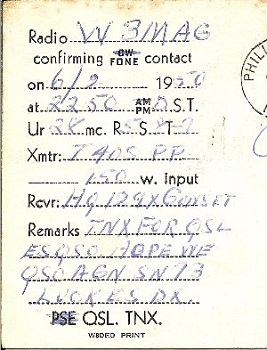 Radio W3MAG
confirming CW FONE contact
on 6/2 1950
at 2250 AM PM S.T.
Ur 28 mc. R S T
Xmtr: T40s PP
150 w. input
Rcvr: HQ 129X Gonset
Remarks TNX FOR QSL
ES QSO HOPE WE
QSO AGN SN 73
LUCK ES DX.
PSE QSL. TNX.
W8DED PRINT
PHIL